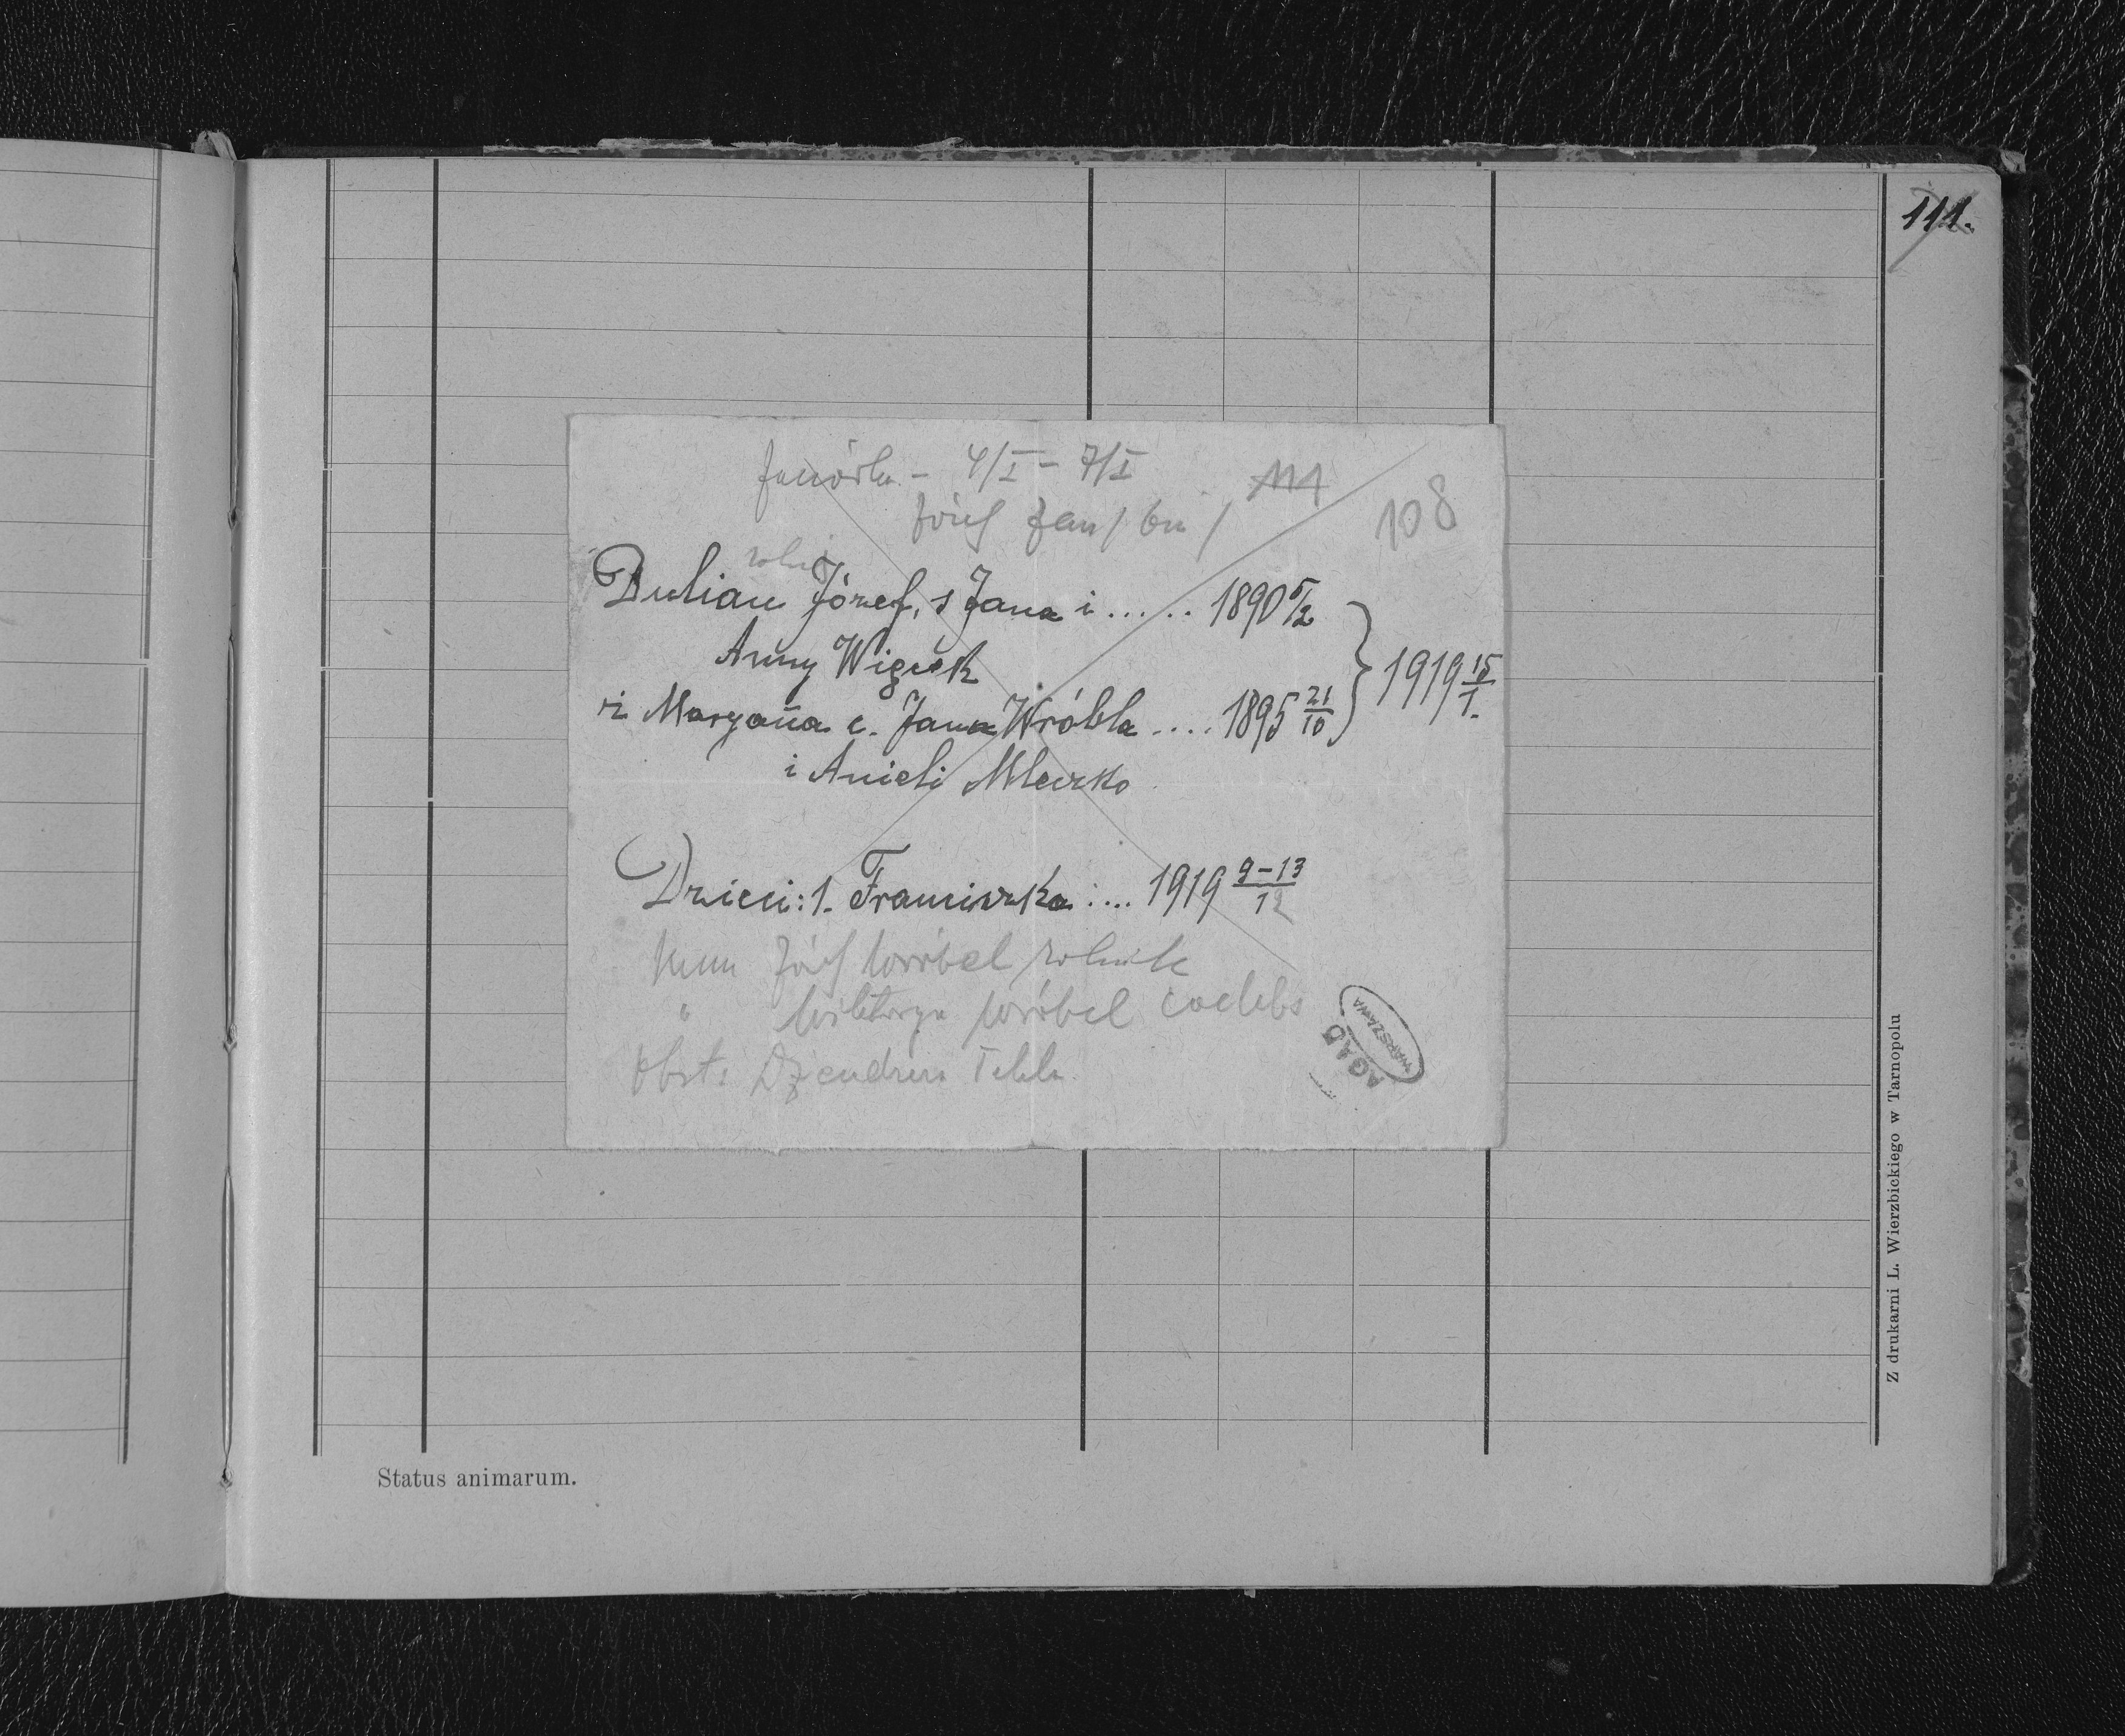 111.
Janówka - 4/I - 7/I
111
108
Józef Jan / bu /
rolnik
Dulian Józef, s Jana i ...... 1890 5/2
Anny Wiącek
ż Maryanna c. Jana Wróbla .... 1895 21/10 } 1919 15/1.
i Anieli Mleczko
Dzieci: 1. Franciszka .... 1919 9-13/12
Józef Wróbel rolnik
" Wiktorya Wróbel coelebs
Obst: Tekla
AGAD
WARSZAWA
Status animarum.
Z drukarni L. Wierzbickiego w Tarnopolu